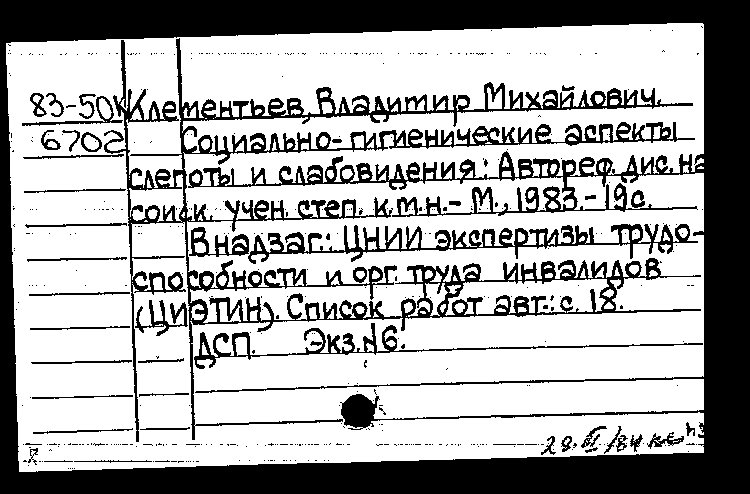 83-50К Клементьев, Владимир Михайлович.
6702 Социально-гигиенические аспекты
слепоты и слабовидения: Автореф. дис. на
соиск. учен. степ. к.т.н.- М., 1983.-19с.
В надзаг.: ЦНИИ экспертизы трудо-
способности и орг. труда инвалидов
(ЦИЭТИН). Список работ авт.: с. 18.
ДСП. Экз. №6.